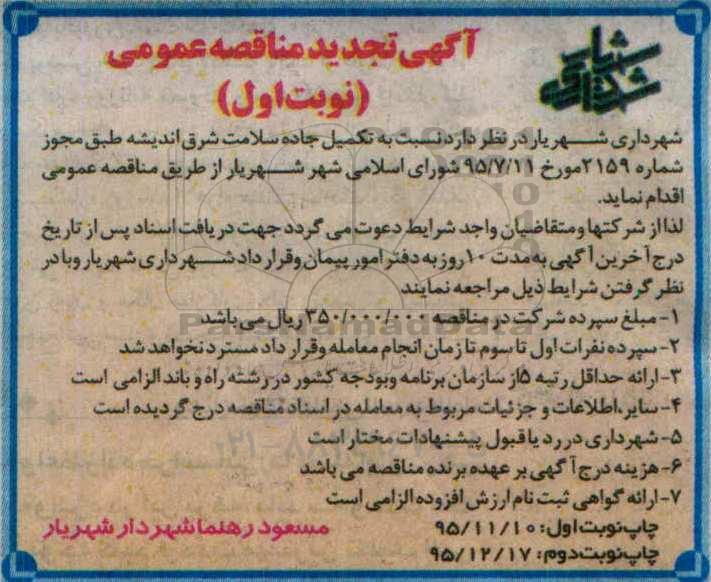 شهرداری شهریار
آگهی تجدید مناقصه عمومی
(نوبت اول)
شهرداری شهریار در نظر دارد نسبت به تکمیل جاده سلامت شرق اندیشه طبق مجوز
شماره ۲۱۵۹ مورخ ۹۵/۷/۱۱ شورای اسلامی شهر شهریار از طریق مناقصه عمومی
اقدام نماید.
لذا از شرکتها و متقاضیان واجد شرایط دعوت می گردد جهت دریافت اسناد پس از تاریخ
درج آخرین آگهی به مدت ۱۰ روز به دفتر امور پیمان و قرار داد شهرداری شهریار و با در
نظر گرفتن شرایط ذیل مراجعه نمایند
۱- مبلغ سپرده شرکت در مناقصه ۳۵۰/۰۰۰/۰۰۰ ریال می باشد
۲- سپرده نفرات اول تا سوم تا زمان انجام معامله و قرار داد مسترد نخواهد شد
۳- ارائه حداقل رتبه ۵ از سازمان برنامه و بودجه کشور در رشته راه و باند الزامی است
۴- سایر اطلاعات و جزئیات مربوط به معامله در اسناد مناقصه درج گردیده است
۵- شهرداری در رد یا قبول پیشنهادات مختار است
۶- هزینه درج آگهی بر عهده برنده مناقصه می باشد
۷- ارائه گواهی ثبت نام ارزش افزوده الزامی است
چاپ نوبت اول: ۹۵/۱۱/۱۰
مسعود رهنما شهردار شهریار
چاپ نوبت دوم: ۹۵/۱۲/۱۷
ParsNamadData